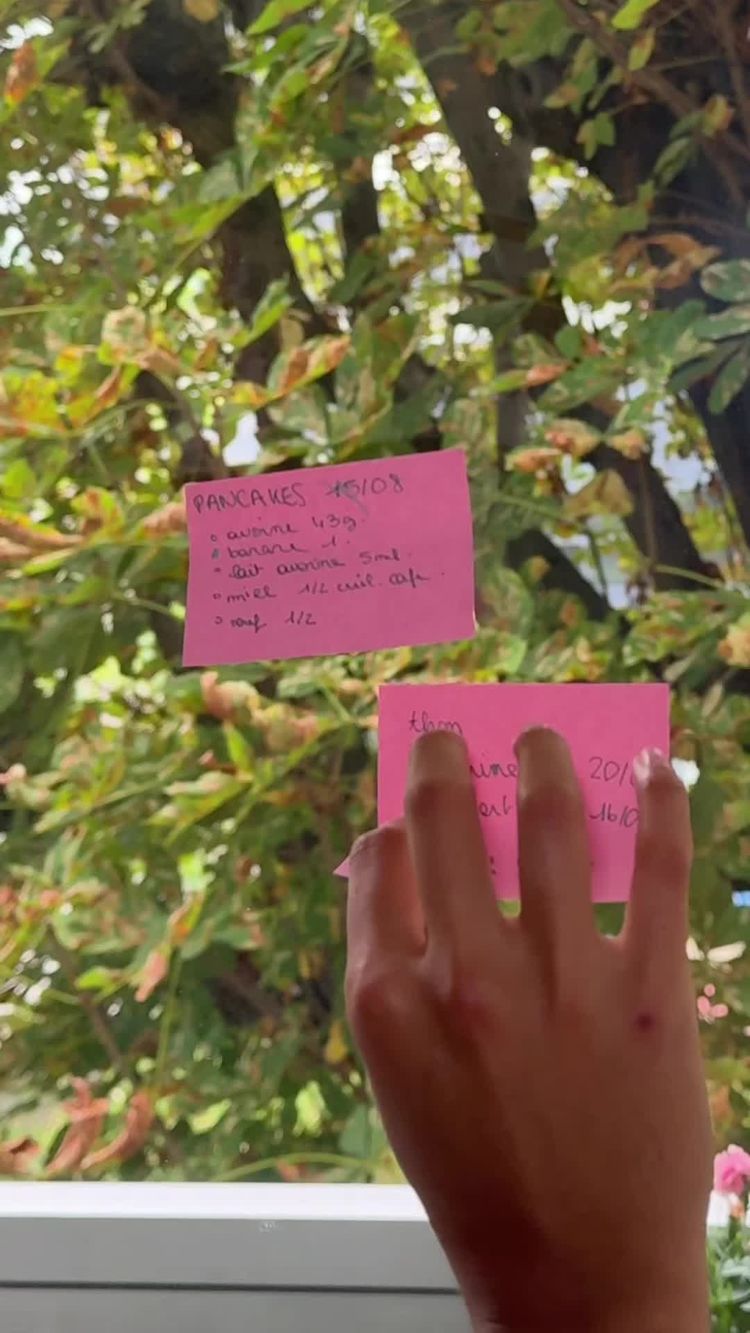 PANCAKES 15/08
◦ avoine 43g.
◦ banane 1.
◦ lait avoine 5ml.
◦ miel 1/2 cuil. café.
◦ œuf 1/2
thon
20/
16/0